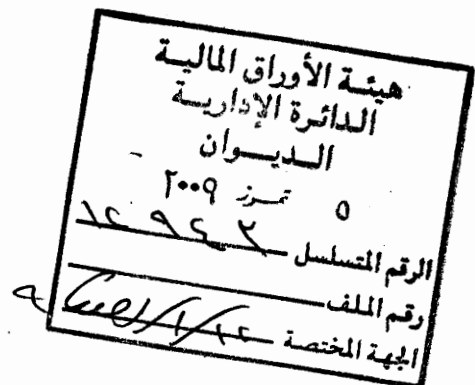 هيئة الأوراق المالية
الدائرة الإدارية
الديوان
٥ تموز ٢٠٠٩
الرقم المتسلسل ١٢٩٤٣
رقم الملف
الجهة المختصة